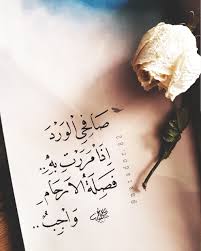 صَافِحِي الْوَرْدَ
إِذَا مَرَرْتِ بِهِ..
فَصِلَةُ الْأَرْحَامِ
وَاجِبُ..